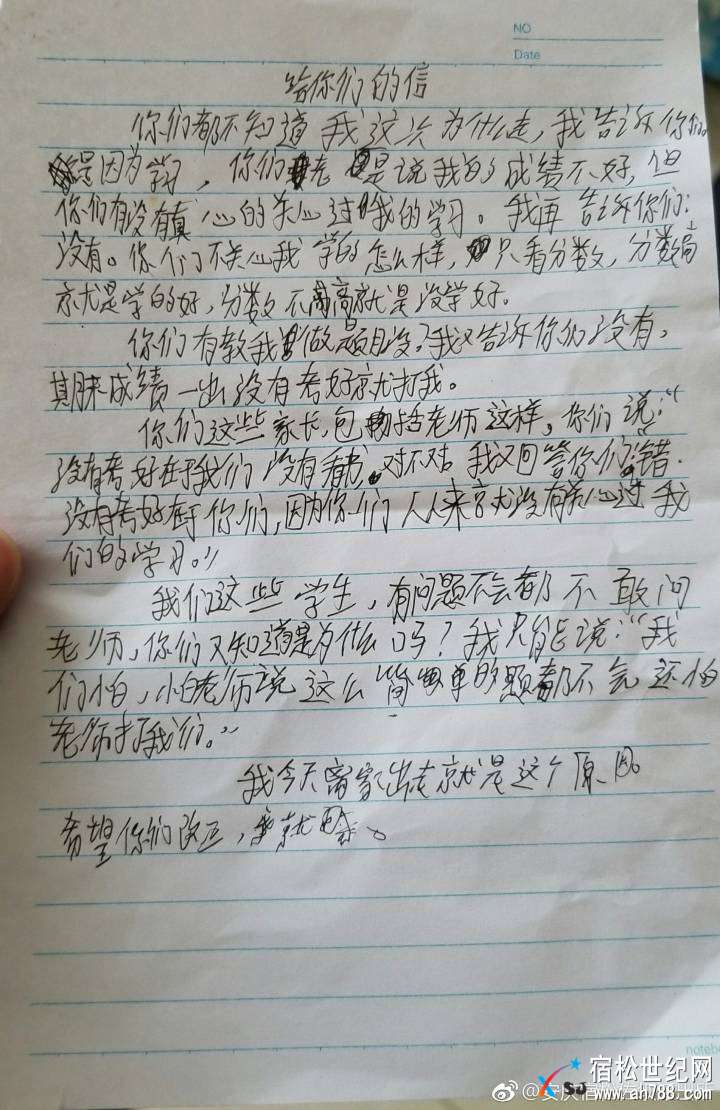 NO
Date
给你们的信
你们都不知道我这次为什么走,我告诉你们。
是因为学习,你们老是说我的成绩不好,但
你们有没有真心的关心过我的学习。我再告诉你们:
没有。你们不关心我学的怎么样,只看分数,分数高
就是学的好,分数不高就是没学好。
你们有教我做题目没?我又告诉你们没有,
期末成绩一出没有考好就打我。
你们这些家长,包括老师这样,你们说:“
没有考好在于我们没有看书,对不对。我又回答你们:“错.
没有考好在于你们,因为你们从来就没有关心过我
们的学习。”
我们这些学生,有问题不会都不敢问
老师,你们又知道是为什么吗?我只能说:“我
们怕,怕老师说这么简单的题都不会还怕
老师打我们。”
我今天离家出走就是这个原因
希望你们改正,我就回家。
notebo
宿松世纪网
www.ah788.com